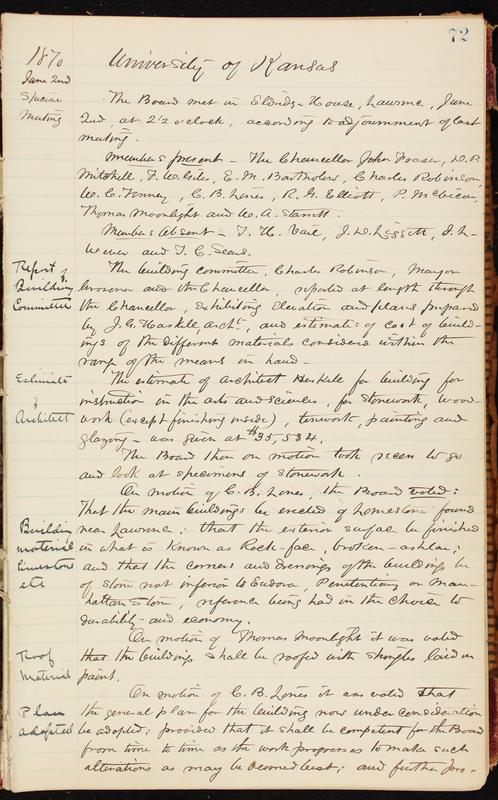 72
1870
June 2nd
Special
Meeting
University of Kansas
The Board met in Eldridge House, Lawrence, June
2nd, at 2½ o'clock, according to adjournment of last
meeting.
Members present - The Chancellor John Fraser, D.P.
Mitchell, F. W. Giles, E. M. Bartholow, Charles Robinson,
W. C. Tenney, C. B. Lines, R. G. Elliott, P. McVicar,
Thomas Moonlight and W. A. Starrett.
Members Absent - T. H. Vail, J. D. Liggett, J. H.
and T. C. Sears.
Report of
Building
Committee
The building committee, Charles Robinson, Mayor
Grovenor and the Chancellor, reported at length through
the Chancellor, exhibiting elevation and plans prepared
by J. G. Haskell, Archt., and estimates of cost of build-
ings of the different materials considered within the
range of the means in hand -
Estimate
of
Architect
The estimate of architect Haskell for building for
instruction in the arts and sciences, for stonework, wood-
work (except finishing inside), tinwork, painting and
glazing - was given at $35,534.
The Board then on motion took recess to go
and look at specimens of stonework.
On motion of C. B. Lines, the Board voted:
Building
material
limestone
etc
That the main buildings be erected of limestone found
near Lawrence; that the exterior surface be finished
in what is known as Rock-face, broken-ashlar;
and that the corners and dressings of the buildings be
of stone not inferior to Eudora, Penitentiary or Man-
hattan Stone, reference being had in the choice to
durability - and economy.
Roof
Material
On motion of Thomas Moonlight it was voted
that the buildings shall be roofed with shingles laid in
paint.
Plan
adopted
On motion of C. B. Lines it was voted that
the general plan for the building now under consideration
be adopted; provided that it shall be competent for the Board
from time to time as the work progresses to make such
alterations as may be deemed best; and further pro-